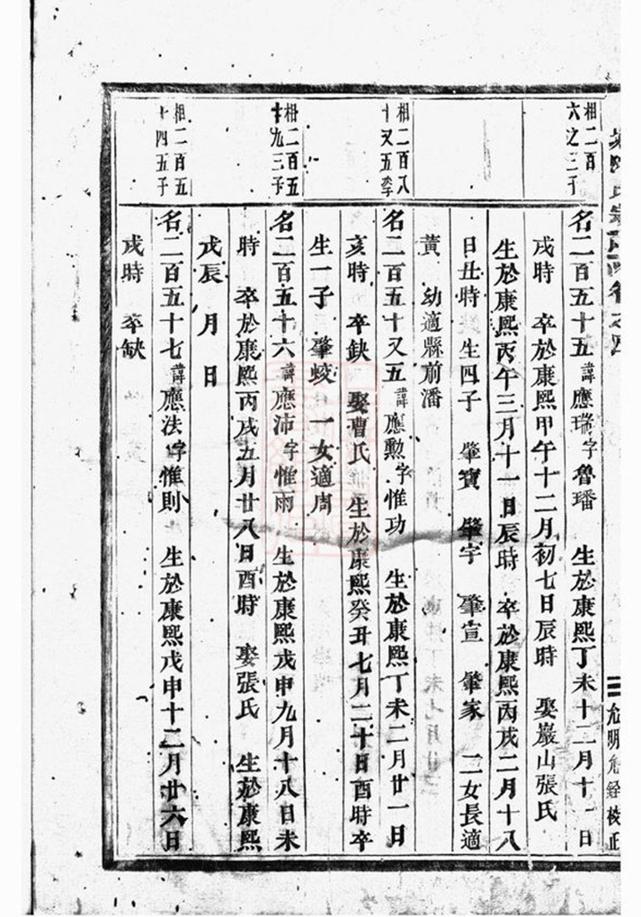 相二百
六之三子
名二百五十五諱應瑞字魯璠 生於康熙丁未十二月十 日
戌時 卒於康熙甲午十二月初七日辰時 娶巖山張氏
生於康熙丙午三月十一日辰時 卒於康熙丙戌二月十八
日丑時 生四子 肇寶 肇宇 肇宣 肇家 二女長適
黃 幼適縣前潘
相二百八
十又五季
名二百五十又五諱應勲字惟功 生於康熙丁未二月廿一日
亥時 卒缺 娶曹氏 生於康熙癸丑七月二十日酉時卒
生一子 肇蛟 一女適周
相二百五
十九三子
名二百五十六諱應沛字惟雨 生於康熙戊申九月十八日未
時 卒於康熙丙戌五月廿八日酉時 娶張氏 生於康熙
戊辰 月 日
相二百五
十四五子
名二百五十七諱應法字惟則 生於康熙戊申十二月廿六日
戌時 卒缺